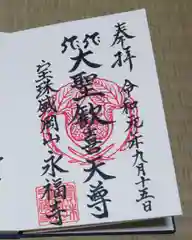 奉拝
令和元年九月十五日
大聖歓喜天尊
宝珠盛岡山永福寺